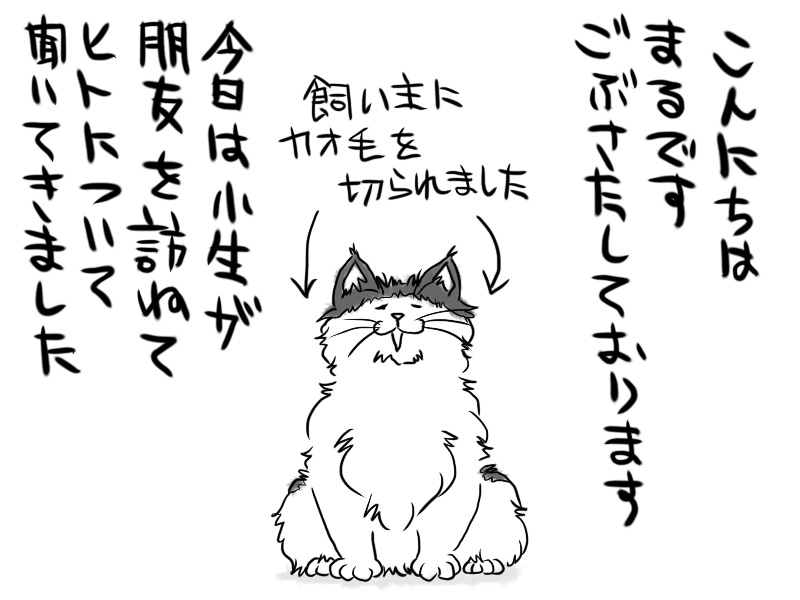 こんにちは
まるです
ごぶさたしております
飼い主に
カオ毛を
切られました
今日は小生が
朋友を訪ねて
ヒトについて
聞いてきました